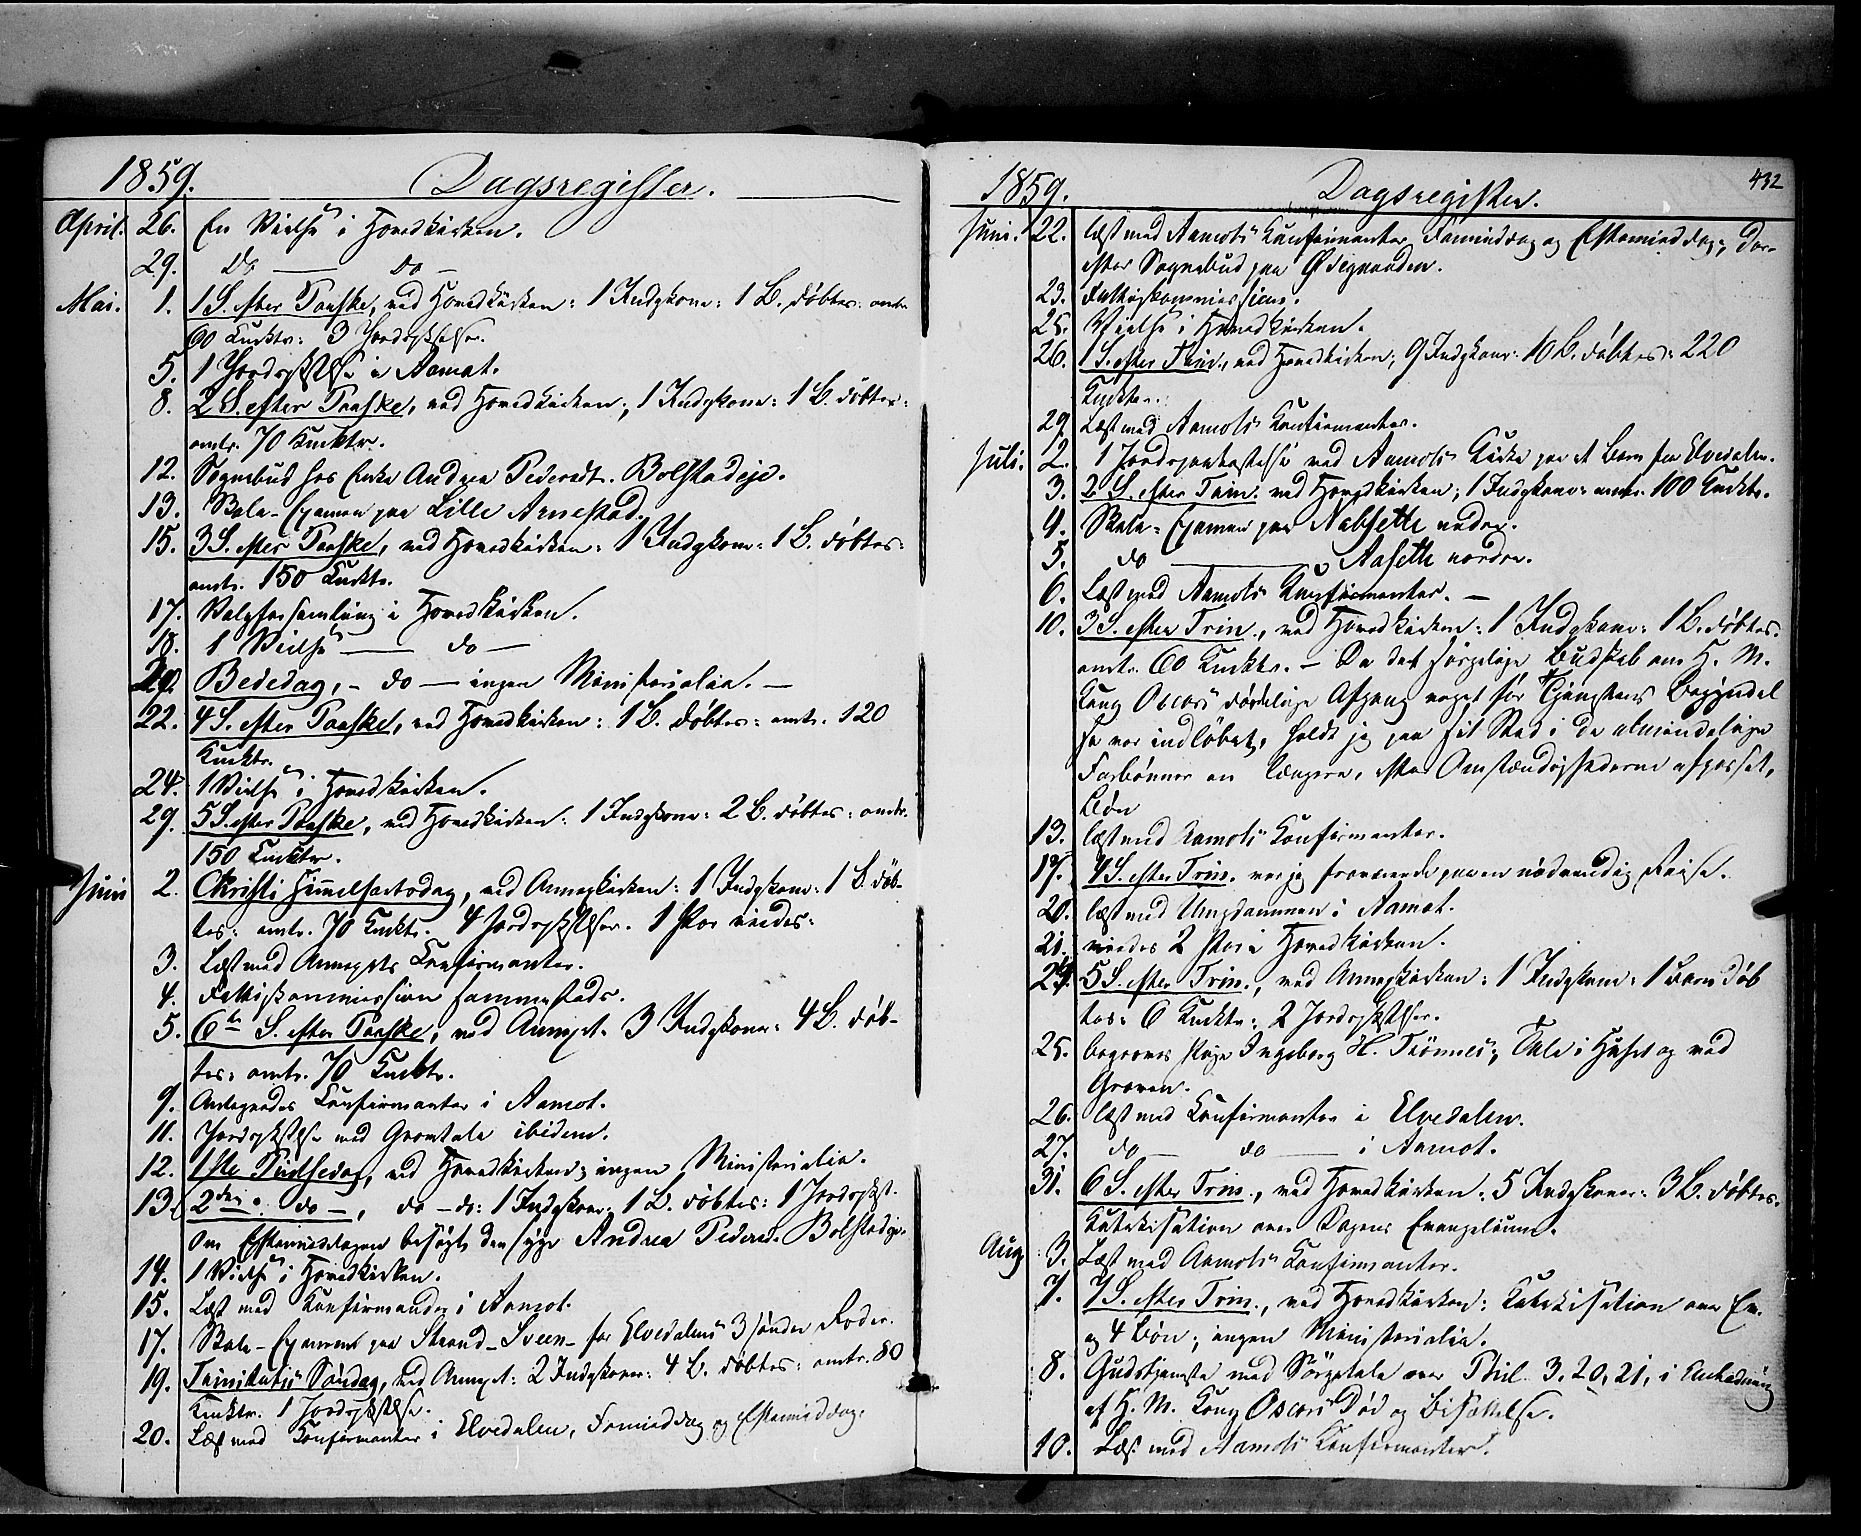 1859. Dagsregister.
April. 26. En Vielse i Hovedkirken.
29. do — do —
Mai. 1. 1 S. efter Paaske, ved Hovedkirken: 1 Indgkone: 1 B. døbtes: omtr.
60 Cmktr: 3 Jordspkstelser.
5. 1 Jordspkstelse i Aamot.
8. 2 S. efter Paaske, ved Hovedkirken; 1 Indgkone: 1 B. døbtes:
omtr. 70 Cmktr.
12. Sognebud hos Enke Andrea Pedersdt. Bolstadeje.
13. Skole-Examen paa Lille Arnestad.
15. 3 S. efter Paaske, ved Hovedkirken: 1 Indgkone: 1 B. døbtes:
omtr. 150 Cmktr.
17. Valgforsamling i Hovedkirken.
18. 1 Vielse — do —
20. Bededag, — do — ingen Ministerialia. —
22. 4 S. efter Paaske, ved Hovedkirken: 1 B. døbtes: omtr. 120
Cmktr.
24. 1 Vielse i Hovedkirken.
29. 5 S. efter Paaske, ved Hovedkirken: 1 Indgkone: 2 B. døbtes: omtr.
150 Cmktr.
Juni 2. Christi Himmelfartsdag, ved Annexkirken: 1 Indgkone: 1 B. døb-
tes: omtr. 70 Cmktr. 4 Jordspkstelser. 1 Par viedes:
3. Læst med Annexets Confirmanter.
4. Fattigkommission sammesteds.
5. 6te S. efter Paaske, ved Annexet. 3 Indgkoner: 4 B. døb-
tes: omtr. 70 Cmktr.
9. Antegnedes Confirmanter i Aamot.
11. Jordspkstelse med Gravtale ibidem.
12. 1ste Pintsedag, ved Hovedkirken; ingen Ministerialia.
13. 2den do —, do — do: 1 Indgkone: 1 B. døbtes: 1 Jordspkst.
Om Eftermiddagen besøgt den syge Andrea Pedersd. Bolstadeje.
14. 1 Vielse i Hovedkirken.
15. Læst med Konfirmander i Aamot.
17. Skole-Examen paa Strand-Sveen for Elvedalens 3 søndre Roder.
19. Trinitatis Søndag, ved Annexet: 2 Indgkoner: 4 B. døbtes: omtr. 80
Cmktr. 1 Jordspkstelse.
20. Læst med Konfirmanter i Elvedalen, Formiddag og Eftermiddag.
1859. Dagsregister. 432
Juni. 22. læst med Aamots Konfirmanter Formiddag og Eftermiddag; der-
efter Sognebud paa Ødegaarden.
23. Fattigkommission.
25. Vielse i Hovedkirken.
26. 1 S. efter Trin., ved Hovedkirken; 9 Indgkoner: 10 B. døbtes: 220
Cmktr.
29. Læst med Aamots Konfirmanter.
Juli. 2. 1 Jordspaakastelse ved Aamots Kirke paa et Barn fra Elvedalen.
3. 2 S. efter Trin. ved Hovedkirken; 1 Indgkone: omtr. 100 Cmktr.
4. Skole-Examen paa Nabsette nedre.
5. do — Aasette nordre.
6. Læst med Aamots Konfirmanter. —
10. 3 S. efter Trin., ved Hovedkirken: 1 Indgkone: 1 B. døbtes:
omtr. 60 Cmktr. — Da det sørgelige Budskab om H. M.
Kong Oscars dødelige Afgang noget før Tjenestens Begyndel
se var indløbet, holdt jeg paa sit Sted i de almindelige
Forbønner en længere, efter Omstændighederne afpasset,
Bøn
13. læst med Aamots Konfirmanter.
17. 4 S. efter Trin. var jeg fraværende paa en nødvendig Reise.
20. læst med Ungdommen i Aamot.
21. viedes 2 Par i Hovedkirken.
24. 5 S. efter Trin., ved Annexkirken: 1 Indgkone: 1 Barn døb
tes: 6 Cmktr.; 2 Jordspkstelser.
25. begraves Pige Ingeborg H. Trønnes; Tale i Huset og ved
Graven.
26. læst med Konfirmanter i Elvedalen.
27. do — do — i Aamot.
31. 6 S. efter Trin., ved Hovedkirken: 5 Indgkoner: 3 B. døbtes.
Katekisation over Dagens Evangelium.
Aug 3. Læst med Aamots Konfirmanter.
7. 7 S. efter Trin., ved Hovedkirken: Katekisation over Ev.
og 4 Bøn; ingen Ministerialia.
8. Gudstjeneste med Sørgetale over Phil. 3, 20, 21, i Anledning
af H. M. Kong Oscars Død og Bisættelse.
10. Læst med Aamots Konfirmanter.